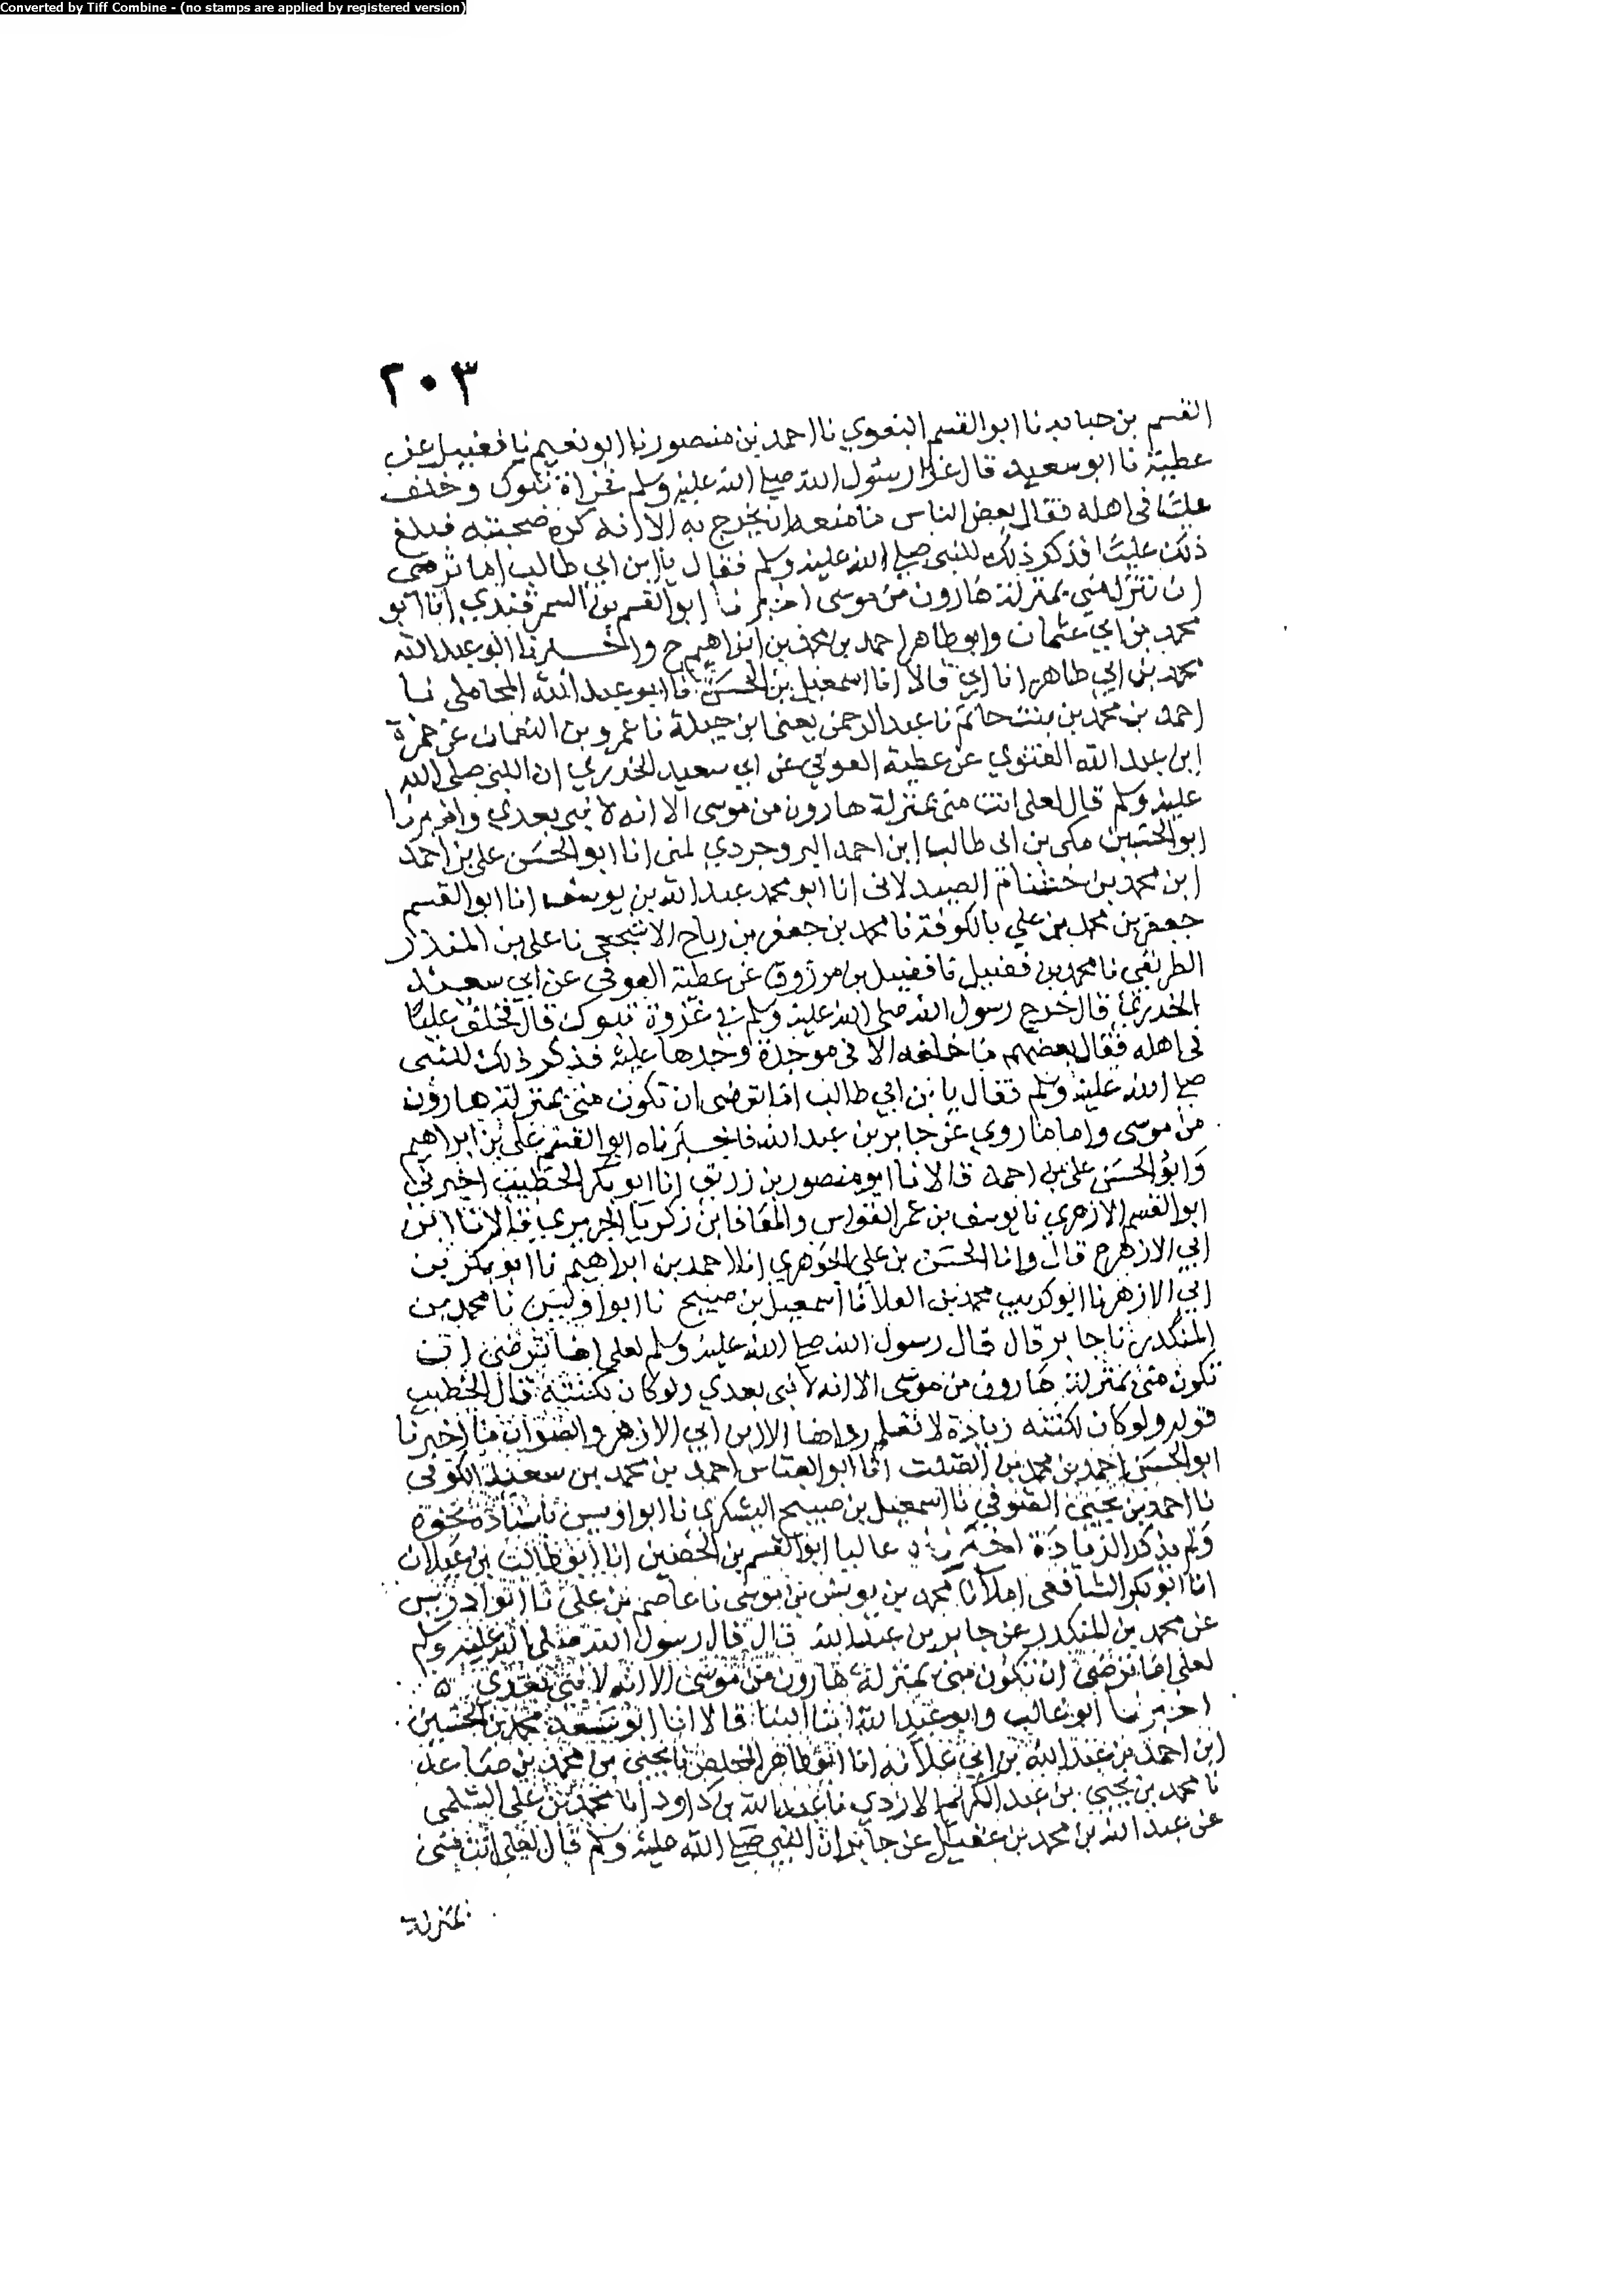 Converted by Tiff Combine - (no stamps are applied by registered version)
٢٠٣
القسم بن حبابه نا ابو القسم البغوي نا احمد بن منصور نا ابو نعيم نا فضيل عن
عطية نا ابو سعيد قال غزا رسول الله صلى الله عليه وسلم غزاة تبوك وخلف
عليا فى اهله فقال بعض الناس ما منعه ان يخرج به الا انه كره صحبته فبلغ
ذلك عليا فذكر ذلك للنبى صلى الله عليه وسلم فقال يا ابن ابي طالب اما ترضى
ان تنزل منى بمنزلة هارون من موسى اخبرنا ابو القسم بن السمرقندي انا ابو
محمد بن ابي عثمان وابو طاهر احمد بن محمد بن ابراهيم ح واخبرنا ابو عبد الله
محمد بن ابي طاهر انا ابي قالا انا اسمعيل بن الحسن نا ابو عبد الله المحاملى نا
احمد بن محمد بن بنت حاتم نا عبد الرحمن يعنى ابن جبلة نا عمرو بن النعمان عن حمزة
ابن عبد الله الغنوي عن عطية العوفي عن ابي سعيد الخدري ان النبى صلى الله
عليه وسلم قال لعلى انت منى بمنزلة هارون من موسى الا انه لا نبى بعدي واخبرنا
ابو الحسين مكى بن ابى طالب ابن احمد البروجردي لمنى انا ابو الحسن على بن احمد
ابن محمد بن خشنام الصيدلانى انا ابو محمد عبد الله بن يوسف انا ابو القسم
جعفر بن محمد بن علي بالكوفة نا محمد بن جعفر بن رباح الاشجعى نا على بن المنذر
الطريقى نا محمد بن فضيل نا فضيل بن مرزوق عن عطية العوفي عن ابي سعيد
الخدري قال خرج رسول الله صلى الله عليه وسلم في غزوة تبوك قال فخلف عليا
فى اهله فقال بعضهم ما خلفه الا فى موجدة وجدها عليه فذكر ذلك للنبى
صلى الله عليه وسلم فقال يا بن ابي طالب اما ترضى ان تكون منى بمنزلة هارون
من موسى واما ما روي عن جابر بن عبد الله فاخبرناه ابو القسم على بن ابراهيم
وابو الحسن على بن احمد قالا نا ابو منصور بن زريق انا ابو بكر الخطيب اخبرنى
ابو القسم الازهري نا يوسف بن عمر القواس والمعافا بن زكريا الجريري قالا نا ابن
ابي الازهر ح قال وانا الحسن بن علي الجوهري انا احمد بن ابراهيم نا ابو بكر بن
ابي الازهر نا ابو كريب محمد بن العلا نا اسمعيل بن صبيح نا ابو اويس نا محمد بن
المنكدر نا جابر قال قال رسول الله صلى الله عليه وسلم لعلى اما ترضى ان
تكون منى بمنزلة هارون من موسى الا انه لا نبى بعدي ولو كان لكنته قال الخطيب
قوله ولو كان لكنته زيادة لا نعلم رواها الا ابن ابي الازهر والصواب ما اخبرنا
ابو الحسن احمد بن محمد بن الصلت انا ابو العباس احمد بن محمد بن سعيد الكوفي
نا احمد بن يحيى الصوفي نا اسمعيل بن صبيح اليشكرى نا ابو اويس باسناده نحوه
ولم يذكر الزيادة اخبرناه عاليا ابو القسم بن الحصين انا ابو طالب بن غيلان
انا ابو بكر الشافعى املا نا محمد بن يونس بن موسى نا عاصم بن على نا ابو ادريس
عن محمد بن المنكدر عن جابر بن عبد الله قال قال رسول الله صلى الله عليه وسلم
لعلى اما ترضى ان تكون منى بمنزلة هارون من موسى الا انه لا نبى بعدي
اخبرنا ابو غالب وابو عبد الله ابنا البنا قالا انا ابو سعد محمد بن الحسين
ابن احمد بن عبد الله بن ابي علانه انا ابو طاهر المخلص نا يحيى بن محمد بن صاعد
نا محمد بن يحيى بن عبد الكريم الازدي نا عبد الله بن داود انا محمد بن على السلمى
عن عبد الله بن محمد بن عقيل عن جابر ان النبي صلى الله عليه وسلم قال لعلى انت منى
بمنزلة